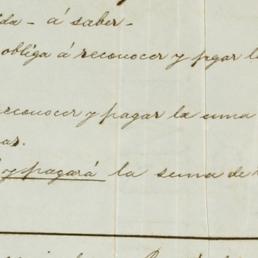 da - á saber -
obliga á reconocer y pagar l
reconocer y pagar la uma
ar.
y pagará la suma de